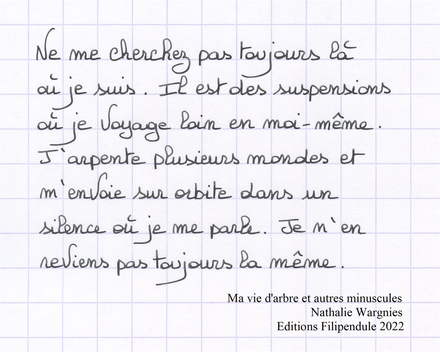 Ne me cherchez pas toujours là
où je suis. Il est des suspensions
où je voyage loin en moi-même.
J'arpente plusieurs mondes et
m'envoie sur orbite dans un
silence où je me parle. Je n'en
reviens pas toujours la même.
Ma vie d'arbre et autres minuscules
Nathalie Wargnies
Editions Filipendule 2022